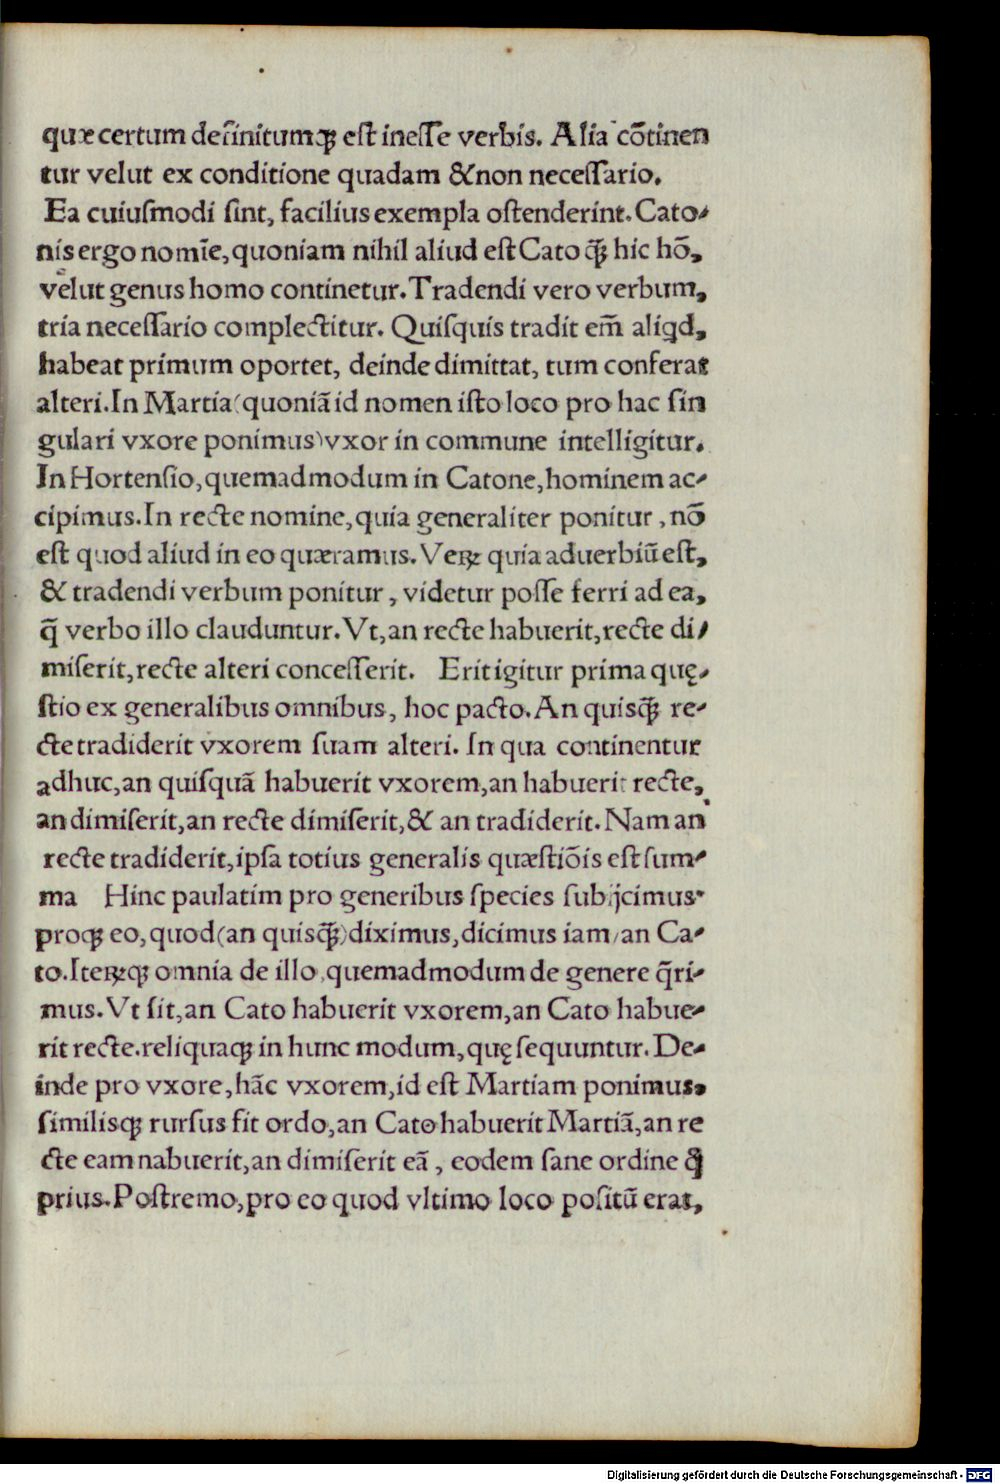 quæ certum definitumqꝫ est inesse verbis. Alia cõtinen
tur velut ex conditione quadam & non necessario.
Ea cuiusmodi sint, facilius exempla ostenderint. Cato-
nis ergo nomĩe, quoniam nihil aliud est Cato q̃ꝫ hic hõ,
velut genus homo continetur. Tradendi vero verbum,
tria necessario complectitur. Quisquis tradit em̃ aliqd,
habeat primum oportet, deinde dimittat, tum conferat
alteri. In Martia (quoniã id nomen isto loco pro hac sin
gulari vxore ponimus) vxor in commune intelligitur.
In Hortensio, quemadmodum in Catone, hominem ac-
cipimus. In recte nomine, quia generaliter ponitur, nõ
est quod aliud in eo quæramus. Veꝝ quia aduerbiũ est,
& tradendi verbum ponitur, videtur posse ferri ad ea,
q̃ verbo illo clauduntur. Vt, an recte habuerit, recte di/
miserit, recte alteri concesserit. Erit igitur prima quę-
stio ex generalibus omnibus, hoc pacto. An quisq̃ꝫ re-
cte tradiderit vxorem suam alteri. In qua continentur
adhuc, an quisquã habuerit vxorem, an habuerit recte,
an dimiserit, an recte dimiserit, & an tradiderit. Nam an
recte tradiderit, ipsa totius generalis quæstiõis est sum-
ma Hinc paulatim pro generibus species subijcimus.
proqꝫ eo, quod (an quisq̃ꝫ) diximus, dicimus iam/ an Ca-
to. Iteꝝqꝫ omnia de illo, quemadmodum de genere q̃ri-
mus. Vt sit, an Cato habuerit vxorem, an Cato habue-
rit recte. reliquaqꝫ in hunc modum, quę sequuntur. De-
inde pro vxore, hãc vxorem, id est Martiam ponimus,
similisqꝫ rursus fit ordo, an Cato habuerit Martiã, an re
cte eam nabuerit, an dimiserit eã, eodem sane ordine q̃ꝫ
prius. Postremo, pro eo quod vltimo loco positũ erat,
Digitalisierung gefördert durch die Deutsche Forschungsgemeinschaft - DFG